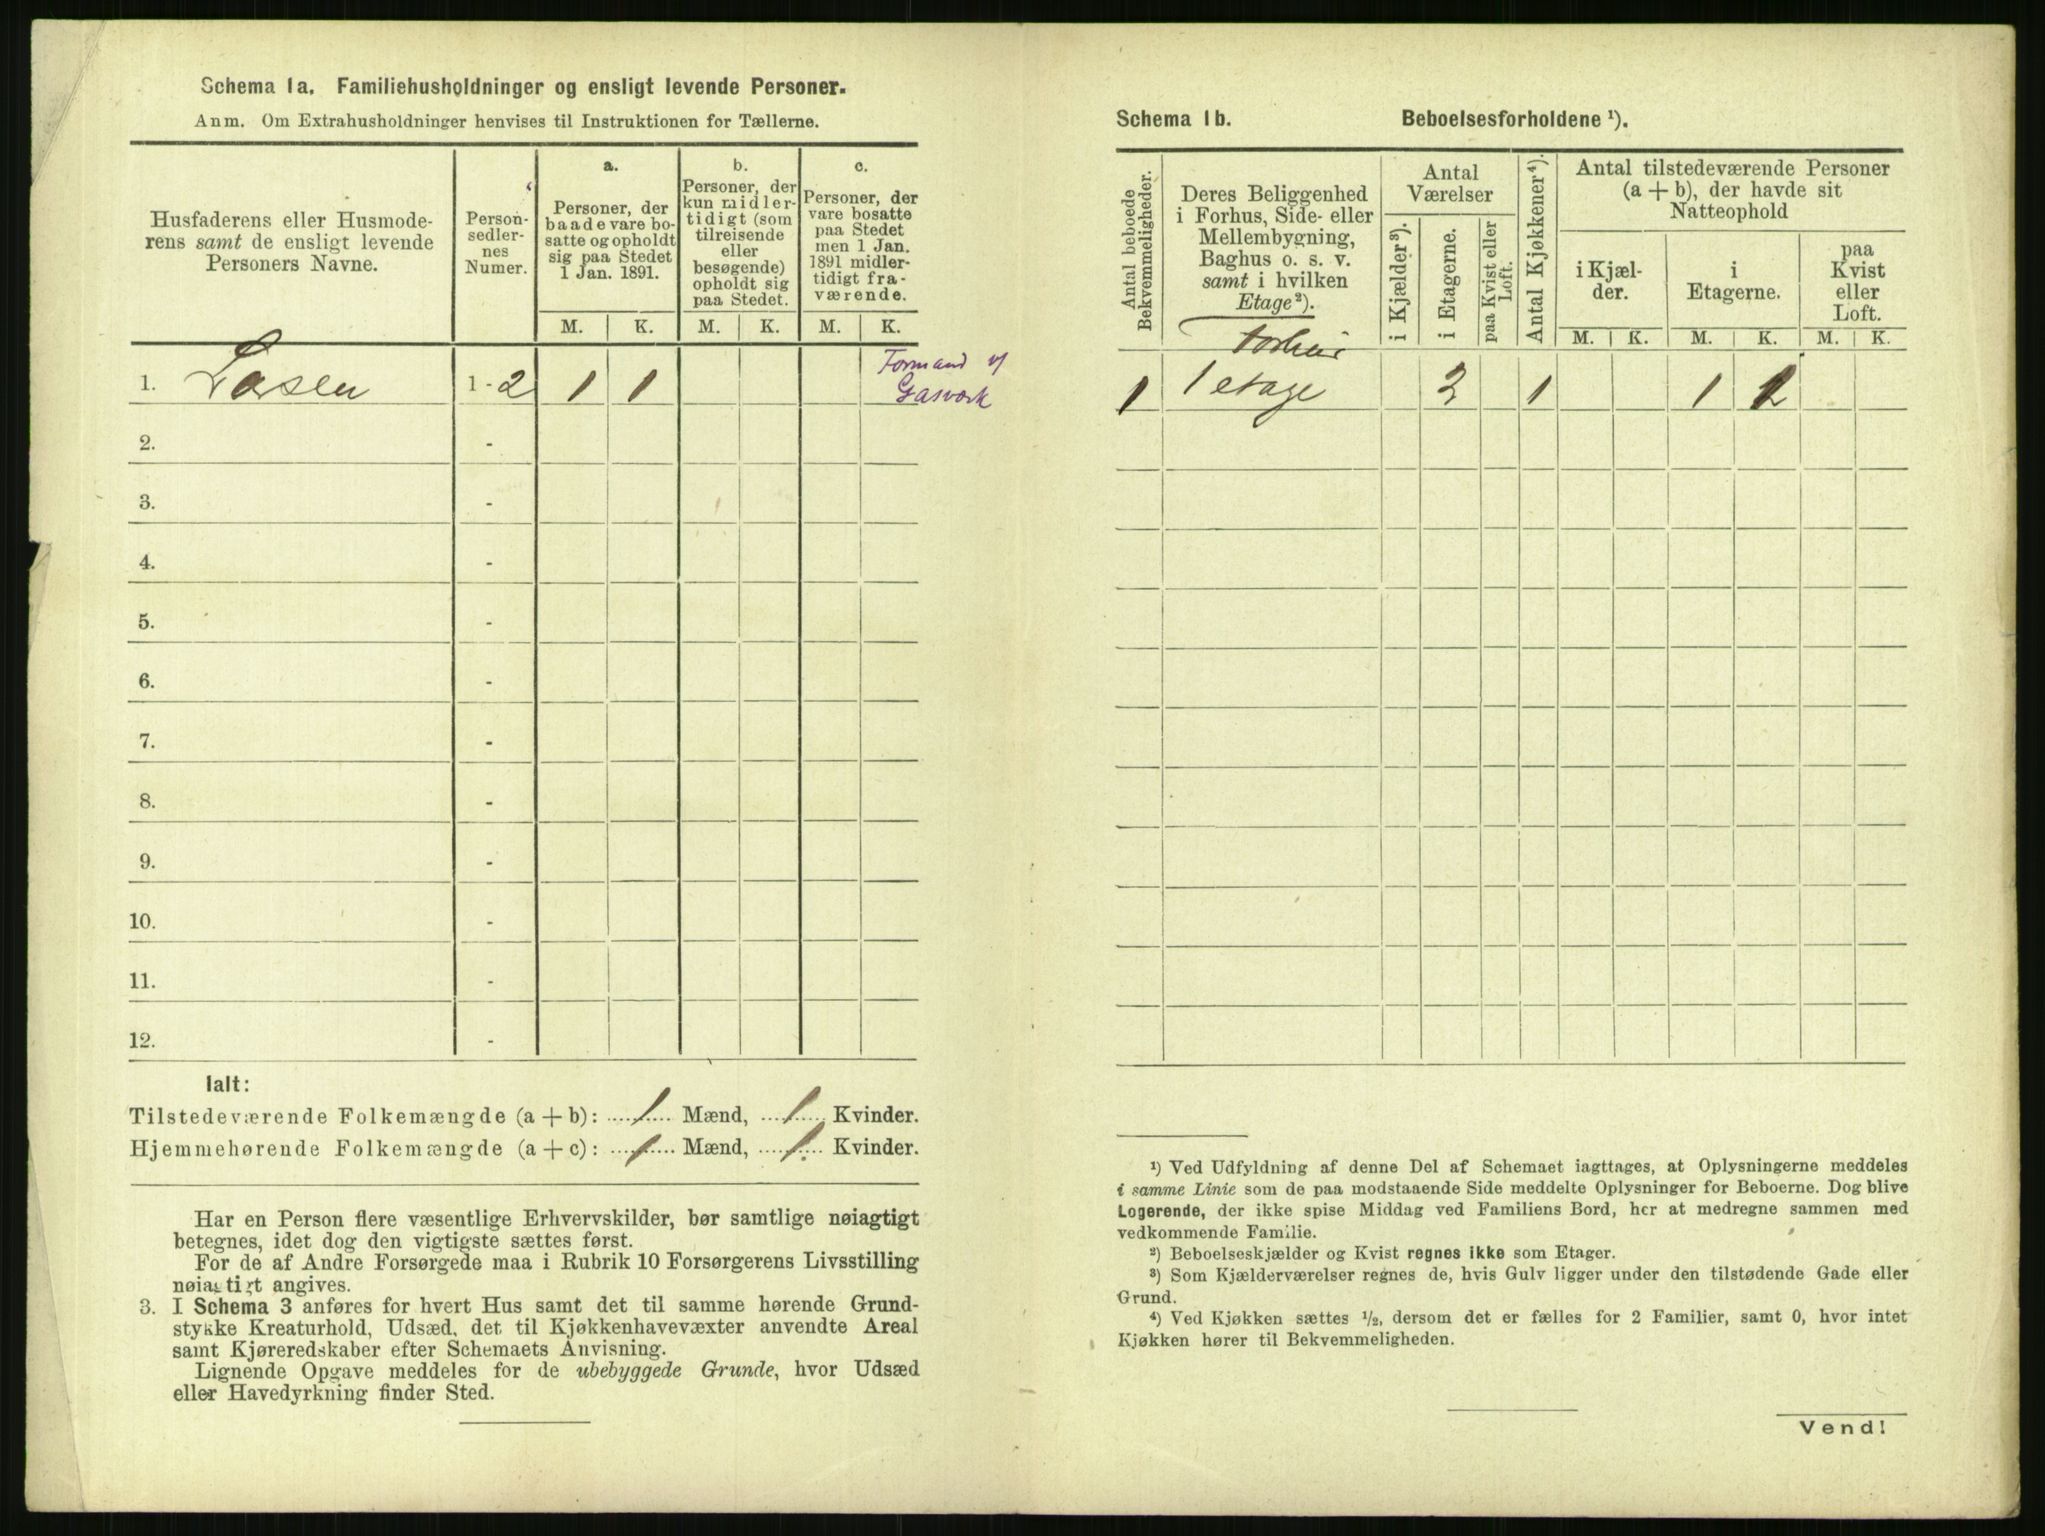 Schema 1a. Familiehusholdninger og ensligt levende Personer.
Anm. Om Extrahusholdninger henvises til Instruktionen for Tællerne.
Husfaderens eller Husmode-
rens samt de ensligt levende
Personers Navne.
Person-
sedler-
nes
Numer.
a.
Personer, der
baade vare bo-
satte og opholdt
sig paa Stedet
1 Jan. 1891.
b.
Personer, der
kun midler-
tidigt (som
tilreisende
eller
besøgende)
opholdt sig
paa Stedet.
c.
Personer, der
vare bosatte
paa Stedet
men 1 Jan.
1891 midler-
tidigt fra-
værende.
M. K. M. K. M. K.
1. Larsen 1 - 2 1 1
Formand v/
Gasværk
2. -
3. -
4. -
5. -
6. -
7. -
8. -
9. -
10. -
11. -
12. -
Ialt:
Tilstedeværende Folkemængde (a + b): 1 Mænd, 1 Kvinder.
Hjemmehørende Folkemængde (a + c): 1 Mænd, 1 Kvinder.
Har en Person flere væsentlige Erhvervskilder, bør samtlige nøiagtigt
betegnes, idet dog den vigtigste sættes først.
For de af Andre Forsørgede maa i Rubrik 10 Forsørgerens Livsstilling
nøiagtigt angives.
3. I Schema 3 anføres for hvert Hus samt det til samme hørende Grund-
stykke Kreaturhold, Udsæd, det til Kjøkkenhavevæxter anvendte Areal
samt Kjøreredskaber efter Schemaets Anvisning.
Lignende Opgave meddeles for de ubebyggede Grunde, hvor Udsæd
eller Havedyrkning finder Sted.
Schema 1b. Beboelsesforholdene ¹).
Antal beboede
Bekvemmeligheder.
Deres Beliggenhed
i Forhus, Side- eller
Mellembygning,
Baghus o. s. v.
samt i hvilken
Etage²).
Antal
Værelser
i Kjælder³).
i Etagerne.
paa Kvist eller
Loft.
Antal Kjøkkener⁴).
Antal tilstedeværende Personer
(a + b), der havde sit
Natteophold
i Kjæl-
der.
i
Etagerne.
paa
Kvist
eller
Loft.
M. K. M. K. M. K.
Forhus
1 1 etage 2 1 1
¹) Ved Udfyldning af denne Del af Schemaet iagttages, at Oplysningerne meddeles
i samme Linie som de paa modstaaende Side meddelte Oplysninger for Beboerne. Dog blive
Logerende, der ikke spise Middag ved Familiens Bord, her at medregne sammen med
vedkommende Familie.
²) Beboelseskjælder og Kvist regnes ikke som Etager.
³) Som Kjælderværelser regnes de, hvis Gulv ligger under den tilstødende Gade eller
Grund.
⁴) Ved Kjøkken sættes ½, dersom det er fælles for 2 Familier, samt 0, hvor intet
Kjøkken hører til Bekvemmeligheden.
Vend!